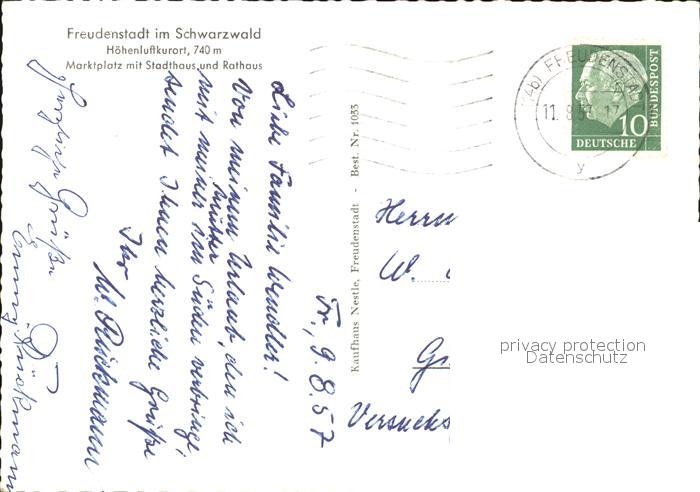 Freudenstadt im Schwarzwald
Höhenluftkurort, 740 m
Marktplatz mit Stadthaus und Rathaus
Fr., 9. 8. 57
Liebe Familie Wendler!
Von meinem Urlaub, den ich
mit meiner Mutter im Süden verbringe,
sendet Ihnen herzliche Grüße
Ihr
W. Rückmann
Herzliche Grüße
Kaufhaus Nestle, Freudenstadt - Best. Nr. 1033
(14b) FREUDENSTA
11. 8. 57 - 17
y
10
DEUTSCHE
BUNDESPOST
Herrn
W.
Gr
Versuchs
privacy protection
Datenschutz